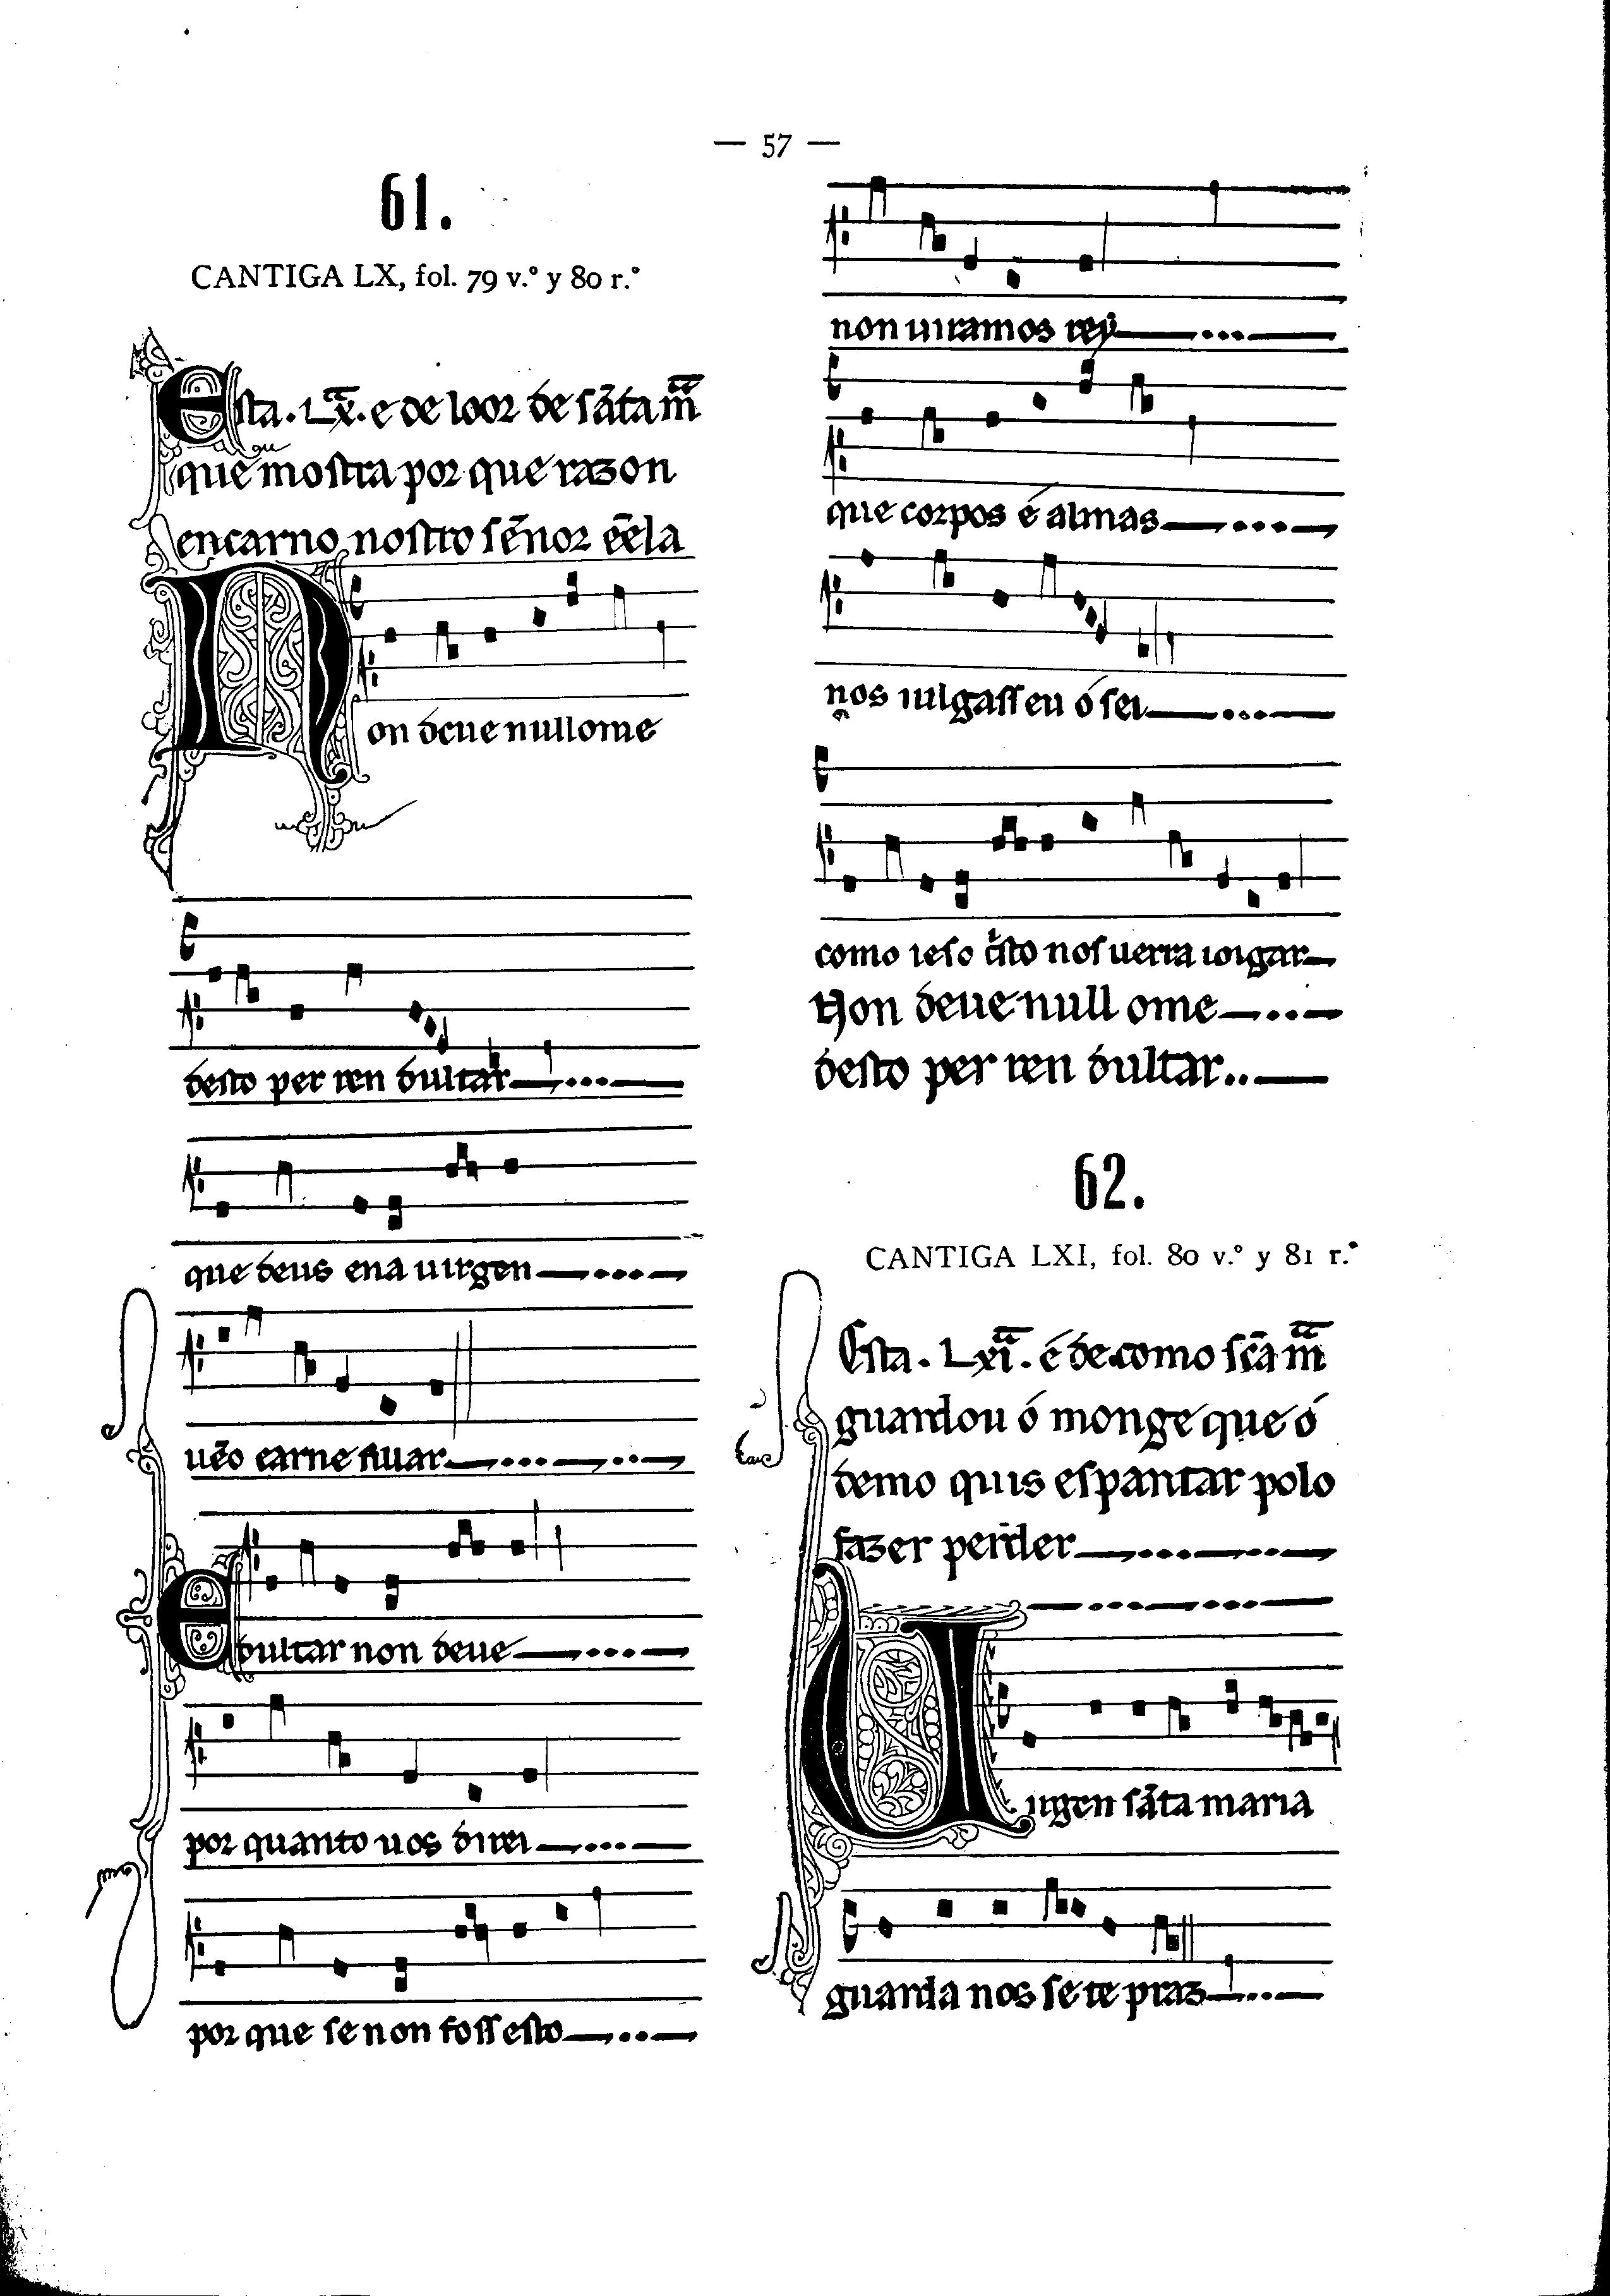 — 57 —
61.
CANTIGA LX, fol. 79 v.º y 80 r.º
Esta. Lx̄ª. e de loor de sãta mª̄
que mostra por que razon
encarno nostro sẽnor ẽela
Non deue null ome
desto per ren dultar
que deus ena uirgen
uẽo carne fillar
E dultar non deue
por quanto uos direi
por que se non foss esto
non uiramos rey
que corpos é almas
nos iulgass eu o sei
como ieso c̃sto nos uerra ioigar
Non deue null ome
desto per ren dultar..
62.
CANTIGA LXI, fol. 80 v.º y 81 r.º
Esta. Lxiª̄. é de como sc̃a mª̄
guardou ó monge que ó
demo quis espantar polo
fazer perder
Uirgen sãta maria
guarda nos se te praz